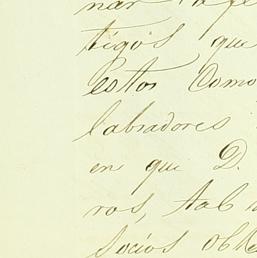 nar
tigos que
estos Como
labradores
en que D.
ros, tal
socios obl